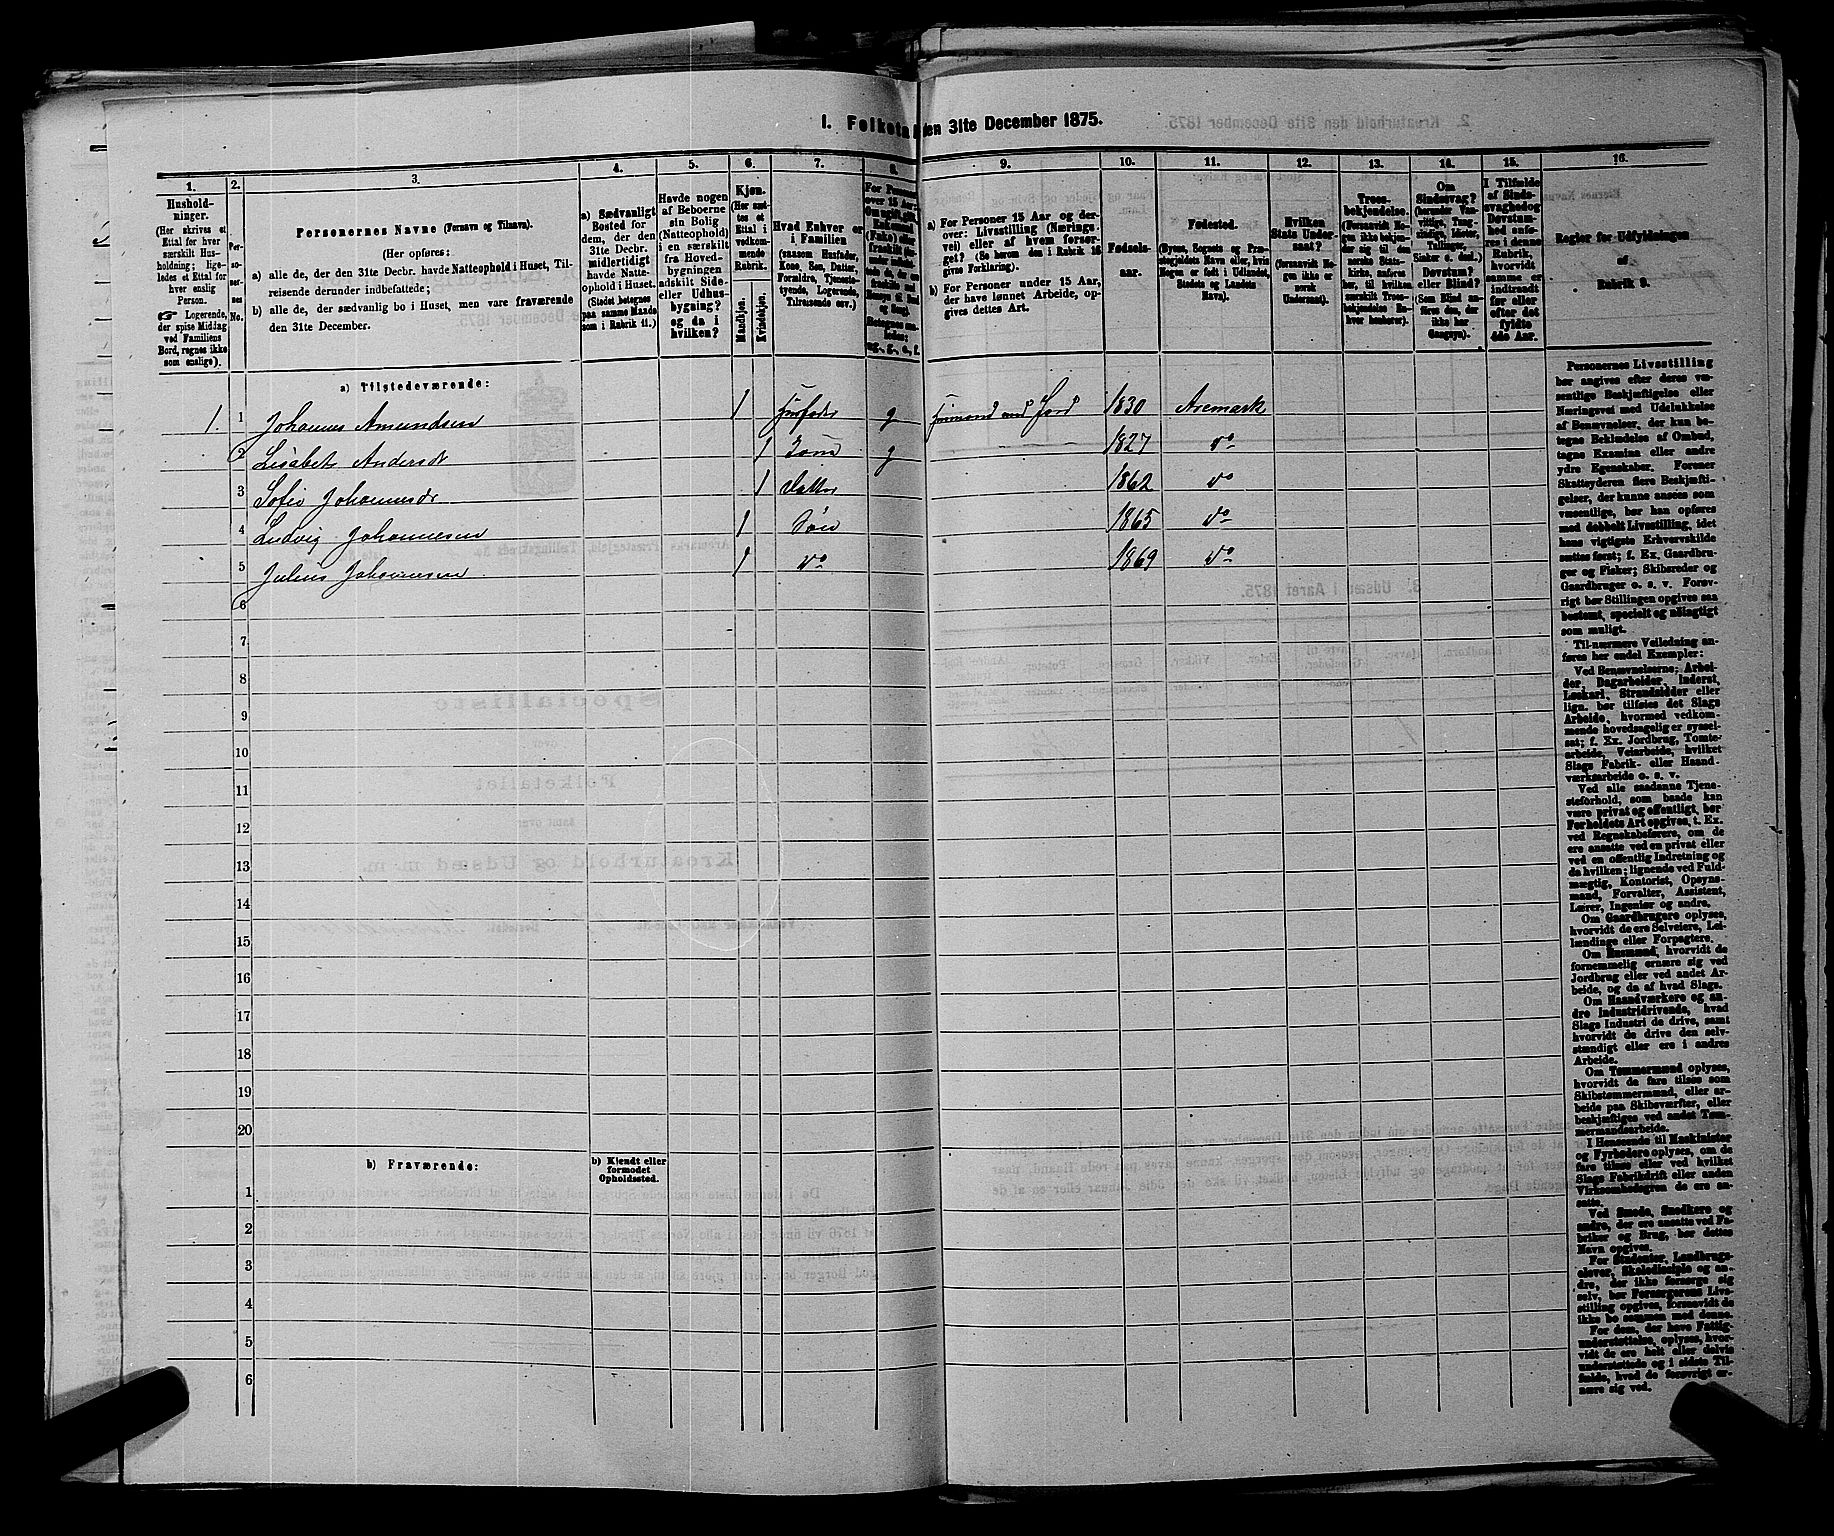 1. Folketa den 31te December 1875.
1. 2. 3. 4. 5. 6. 7. 8. 9. 10. 11. 12. 13. 14. 15. 16.
Hushold-
ninger.
(Her skrives et
Ettal for hver
særskilt Hus-
holdning; lige-
ledes et Ettal for
hver enslig
Person.
☞ Logerende,
der spise Middag
ved Familiens
Bord, regnes ikke
som enslige).
Per-
so-
ner-
nes
No.
Personernes Navne (Fornavn og Tilnavn).
(Her opføres:
a) alle de, der den 31te Decbr. havde Natteophold i Huset, Til-
reisende derunder indbefattede;
b) alle de, der sædvanlig bo i Huset, men vare fraværende
den 31te December.
a) Sædvanligt
Bosted for
dem, der den
31te Decbr.
midlertidigt
havde Natte-
ophold i Huset.
(Stedet betegnes
paa samme Maade
som i Rubrik 11.)
Havde nogen
af Beboerne
sin Bolig
(Natteophold)
i en særskilt
fra Hoved-
bygningen
adskilt Side-
eller Udhus-
bygning?
og da i
hvilken?
Kjøn.
(Her sæt-
tes et
Ettal i
vedkom-
mende
Rubrik.
Mandkjøn.
Kvindekjøn.
Hvad Enhver er
i Familien
(saasom Husfader,
Kone, Søn, Datter,
Forældre, Tjeneste-
tyende, Logerende,
Tilreisende osv.)
a) For Personer 15 Aar og der-
over: Livsstilling (Nærings-
vei) eller af hvem forsør-
get? (Se herom den i Rubrik 16
givne Forklaring).
b) For Personer under 15 Aar,
der have lønnet Arbeide, op-
gives dettes Art.
Fødsels-
aar.
Fødested.
(Byens, Sognets og Præ-
stegjeldets Navn eller, hvis
Nogen er født i Udlandet,
Stedets og Landets
Navn).
Hvilken
Stats Under-
saat?
(forsaavidt No-
gen ikke er
norsk
Undersaat).
Troes-
bekjendelse.
(Forsaavidt No-
gen ikke bekjen-
der sig til den
norske Stats-
kirke, anføres
her, til hvilken
særskilt Troes-
bekjendelse En-
hver henhører).
Om
Sindssvag?
Døvstum?
eller Blind?
I Tilfælde
af Sinds-
svaghed og
Døvstum-
hed anfø-
res i denne
Rubrik,
hvorvidt
samme er
indtraadt
før eller
efter det
fyldte
4de Aar.
Regler for Udfyldningen
af
Rubrik 9.
a) Tilstedeværende:
1. 1 Johannes Amundsen 1 Husfader g Husmand med Jord 1830 Aremark
2 Lisabet Andersdt 1 Kone g 1827 do
3 Sofie Johannesdr 1 Datter 1862 do
4 Ludvig Johannesen 1 Søn 1865 do
5 Julius Johannesen 1 do 1869 do
6
7
8
9
10
11
12
13
14
15
16
17
18
19
20
b) Fraværende:
b) Kjendt eller
formodet
Opholdssted.
1
2
3
4
5
6
Personernes Livsstilling
bør angives efter deres væ-
sentlige Beskjæftigelse eller
Næringsvei med Udelukkelse
af Benævnelser, der kun be-
tegne Beklædelse af Ombud,
tagne Examina eller andre
ydre Egenskaber. Forener
Skatteyderen flere Beskjæfti-
gelser, der kunne ansees som
væsentlige, bør han opføres
med dobbelt Livsstilling, idet
hans vigtigste Erhvervskilde
sættes først; f. Ex. Gaardbru-
ger og Fisker; Skibsreder og
Gaardbruger o. s. v. Forøv-
rigt bør Stillingen opgives saa
bestemt, specielt og nøiagtigt
som muligt.
Til nærmere Veiledning an-
føres her endel Exempler:
Ved Benævnelserne: Arbei-
der, Dagarbeider, Inderst,
Løskarl, Strandsidder eller
lign. bør tilføies det Slags
Arbeide, hvormed vedkom-
mende hovedsagelig er syssel-
sat; f. Ex. Jordbrug, Tomte-
arbeide, Veiarbeide, hvilket
Slags Fabrik- eller Haand-
værksarbeide o. s. v.
Ved alle saadanne Tjene-
steforhold, som baade kan
være privat og offentligt, bør
Forholdets Art opgives, t. Ex.
ved Regnskabsførere, om de
ere ansatte ved en privat eller
ved en offentlig Indretning og
da hvilken; lignende ved Fuld-
mægtig, Kontorist, Opsyns-
mand, Forvalter, Assistent,
Lærer, Ingeniør og andre.
Om Gaardbrugere oplyses,
hvorvidt de ere Selveiere, Lei-
lændinge eller Forpagtere.
Om Husmænd, hvorvidt de
fornemmelig ernære sig ved
Jordbrug eller ved andet Ar-
beide, og da af hvad Slags.
Om Haandværkere og an-
dre Industridrivende, hvad
Slags Industri de drive, samt
hvorvidt de drive den selv-
stændigt eller ere i andres
Arbeide.
Om Tømmermænd oplyses,
hvorvidt de fare tilsøs som
Skibstømmermænd, eller ar-
beide paa Skibsværfter, eller
beskjæftiges ved andet Tøm-
mermandsarbeide.
I Henseende til Maskinister
og Fyrbødere oplyses, om de
fare tilsøs eller ved hvilket
Slags Fabrikdrift eller anden
Virksomhedsgren de ere an-
satte.
Ved Smede, Snedkere og
andre, der ere ansatte ved Fa-
briker og Brug, bør dettes
Navn opgives.
For Studenter, Landbrugs-
elever, Skoledisciple og an-
dre, der ikke forsørge sig
selv, bør Forsørgerens Livs-
stilling opgives, forsaavidt de
ikke bo sammen med denne.
For dem, der have Fattig-
understøttelse, oplyses, hvor-
vidt de ere helt eller delvis
understøttede og i sidste Til-
fælde, hvad de forøvrigt er-
nære sig ved.